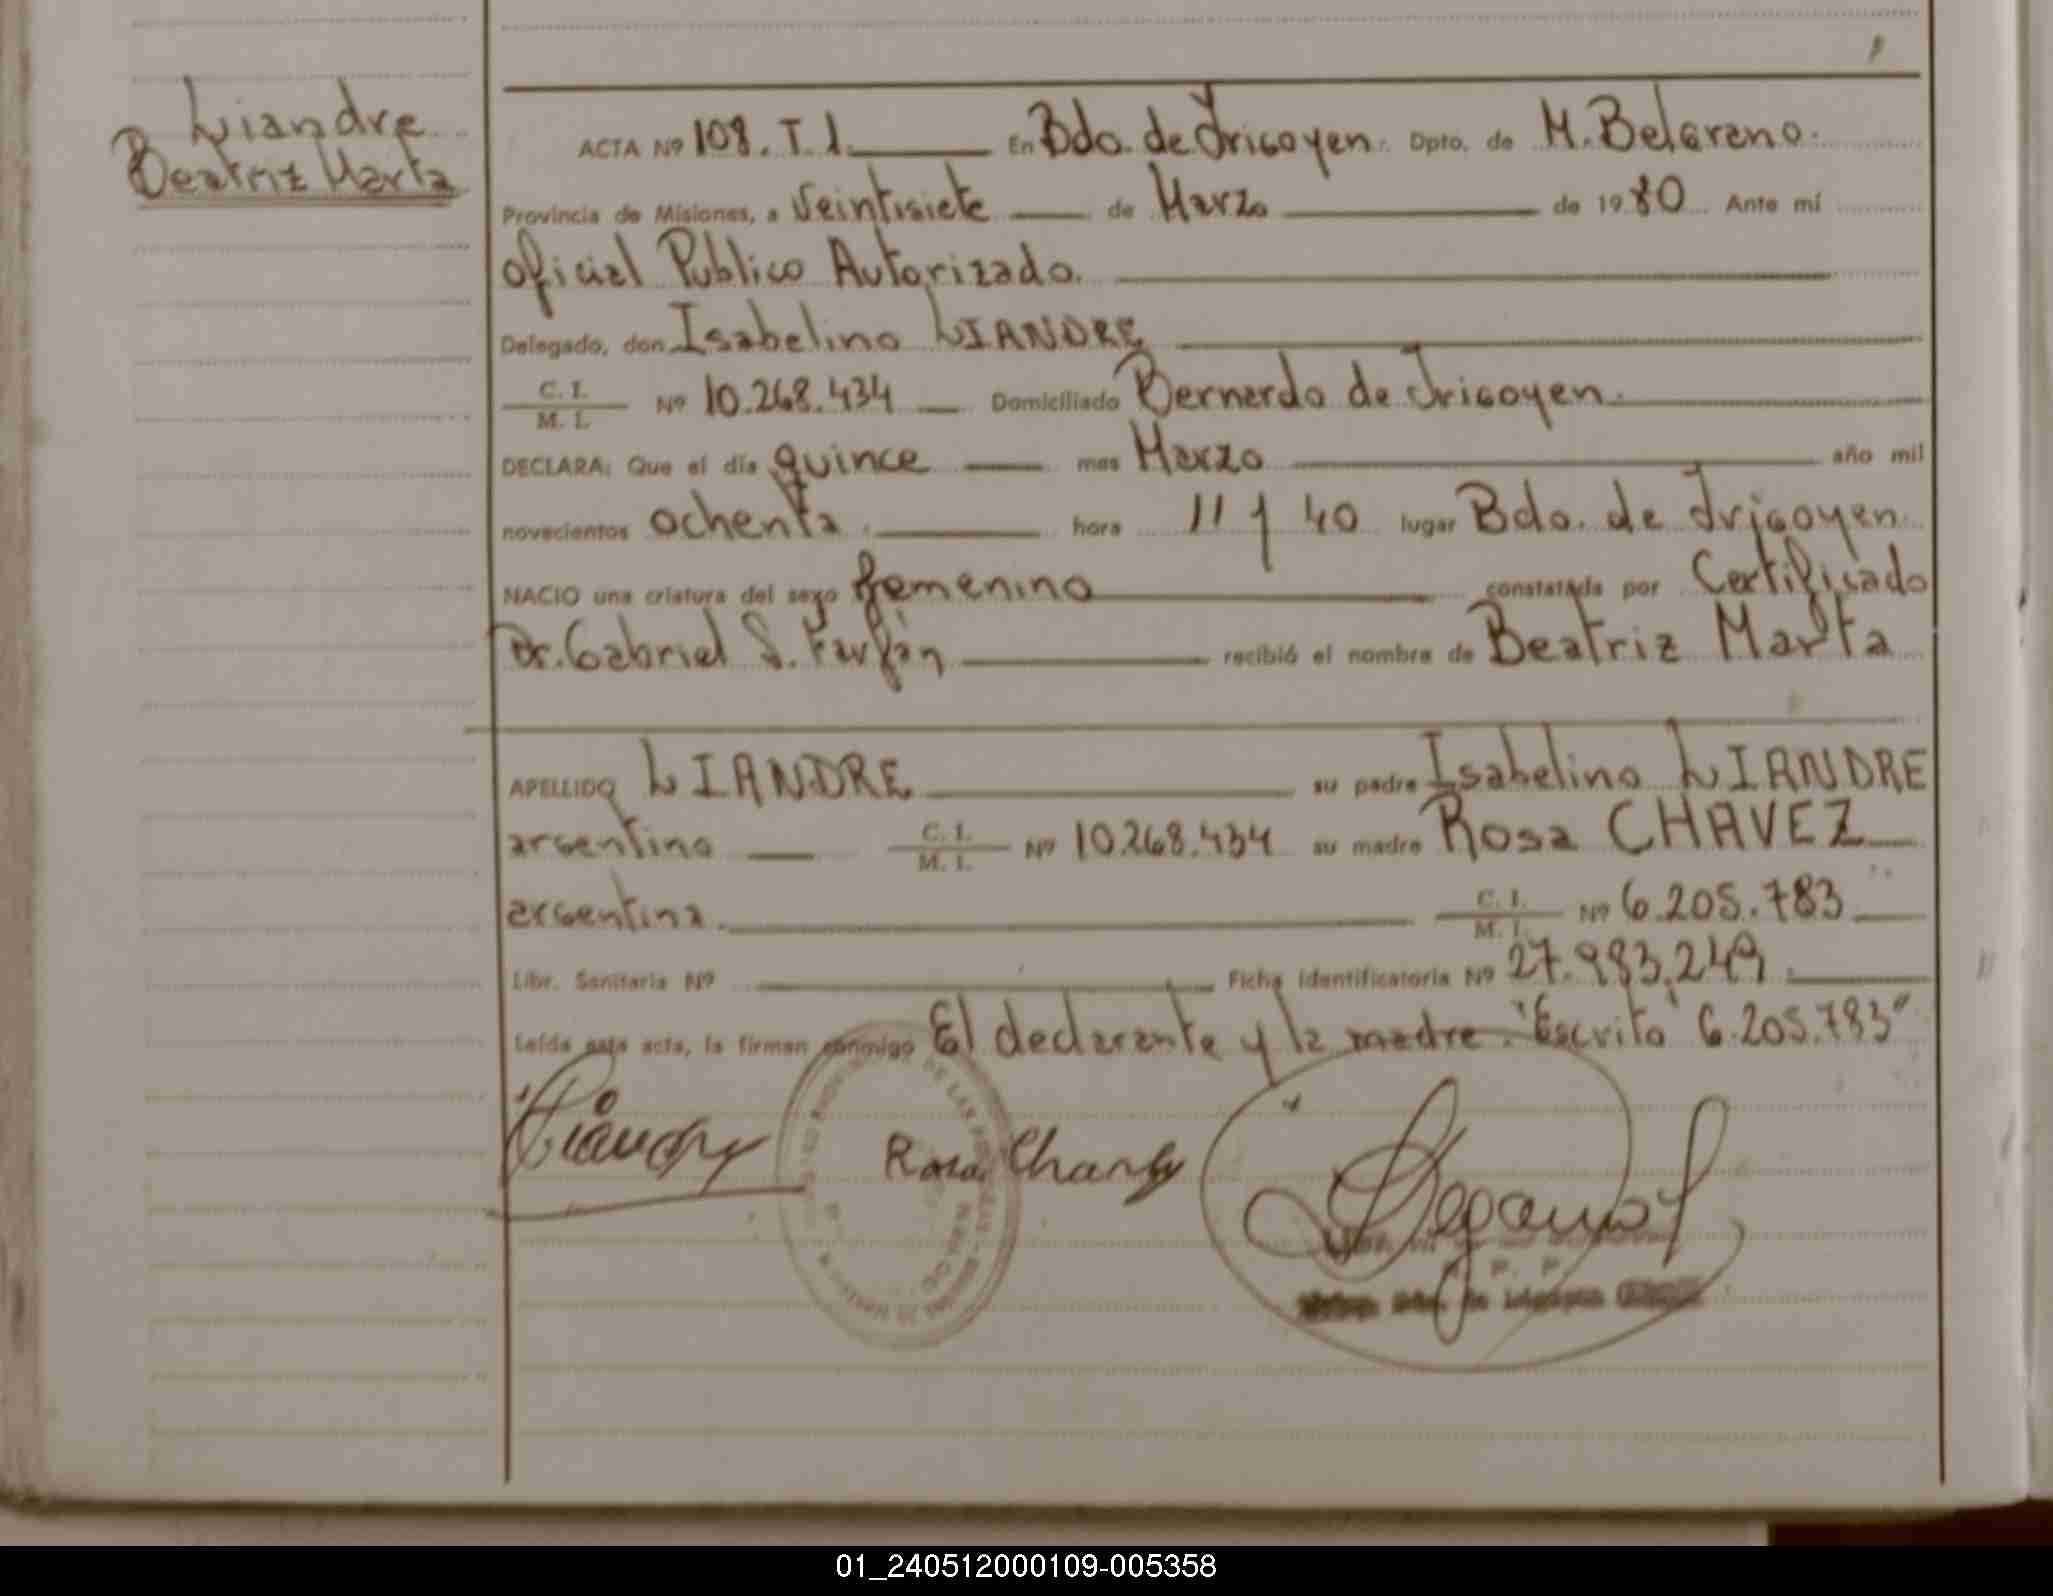 Liandre
Beatriz Marta
ACTA Nº 108. T. 1. En Bdo. de Irigoyen. Dpto. de M. Belgrano.
Provincia de Misiones, a Veintisiete de Marzo de 1980 Ante mí
Oficial Publico Autorizado.
Delegado, don Isabelino LIANDRE
C. I. / M. I. Nº 10.268.434 Domiciliado Bernardo de Irigoyen.
DECLARA: Que el día quince mes Marzo año mil
novecientos Ochenta hora 11 y 40 lugar Bdo. de Irigoyen.
NACIO una criatura del sexo femenino constatada por Certificado
Dr. Gabriel S. Farfán recibió el nombre de Beatriz Marta
APELLIDO LIANDRE su padre Isabelino LIANDRE
argentino C. I. / M. I. Nº 10.268.434 su madre Rosa CHAVEZ
argentina. C. I. / M. I. Nº 6.205.783
Libr. Sanitaria Nº Ficha identificatoria Nº 27.983.249
Leída esta acta, la firman conmigo El declarante y la madre. "Escrito" 6.205.783"
Liandre Rosa
P. P.
01_240512000109-005358